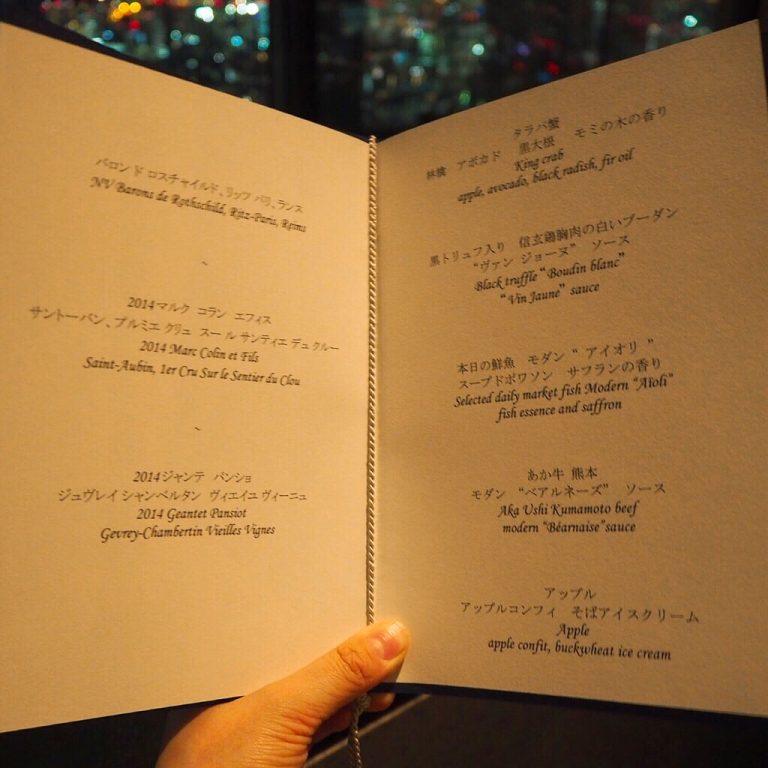 バロン ド ロスチャイルド、リッツ パリ、ランス
NV Barons de Rothschild, Ritz-Paris, Reims
~
2014 マルク コラン エフィス
サントーバン、プルミエ クリュ スー ル サンティエ デュ クルー
2014 Marc Colin et Fils
Saint-Aubin, 1er Cru Sur le Sentier du Clou
~
2014 ジャンテ パンショ
ジュヴレイ シャンベルタン ヴィエイユ ヴィーニュ
2014 Geantet Pansiot
Gevrey-Chambertin Vieilles Vignes
タラバ蟹
林檎 アボカド 黒大根 モミの木の香り
King crab
apple, avocado, black radish, fir oil
黒トリュフ入り 信玄鶏胸肉の白いブーダン
“ヴァン ジョーヌ” ソース
Black truffle “Boudin blanc”
“Vin Jaune” sauce
本日の鮮魚 モダン “ アイオリ ”
スープドポワソン サフランの香り
Selected daily market fish Modern “Aïoli”
fish essence and saffron
あか牛 熊本
モダン “ベアルネーズ” ソース
Aka Ushi Kumamoto beef
modern “Béarnaise”sauce
アップル
アップルコンフィ そばアイスクリーム
Apple
apple confit, buckwheat ice cream